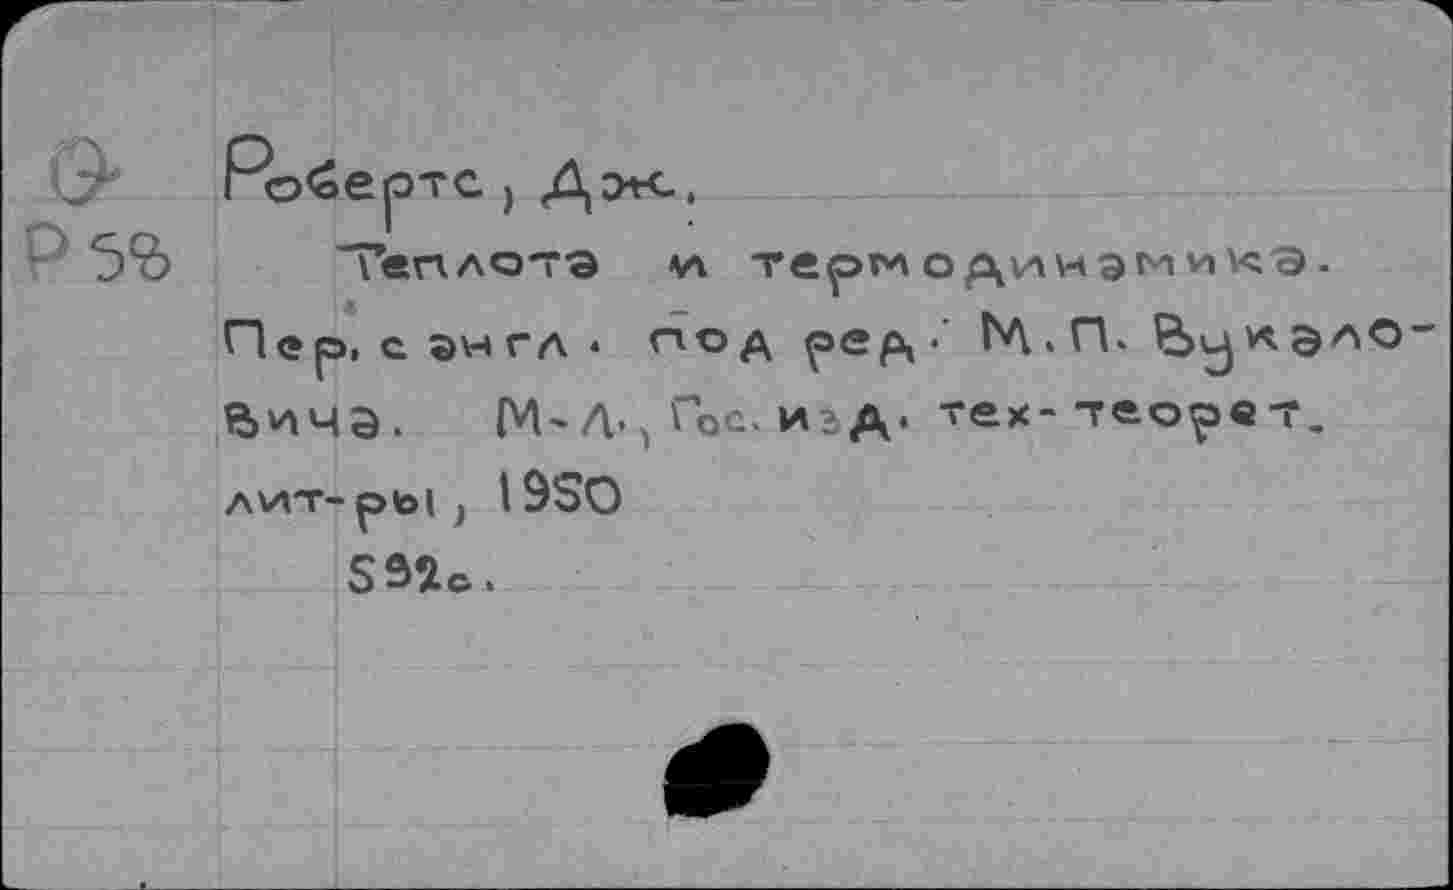 Э
Робертс, Дж.
Р 58
Теплота и термодинамика.
Пер. с англ. под ред. М.П. Вукало-
вича. М-Л., Гос. изд. тех-теорет.
лит-ры, 1950
592с.